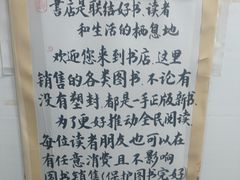 书店是联结好书、读者
和生活的栖息地
欢迎您来到书店,这里
销售的各类图书不论有
没有塑封,都是一手正版新书
为了更好推动全民阅读,
每位读者朋友也可以在
有任意消费且不影响
图书销售(保护图书完好